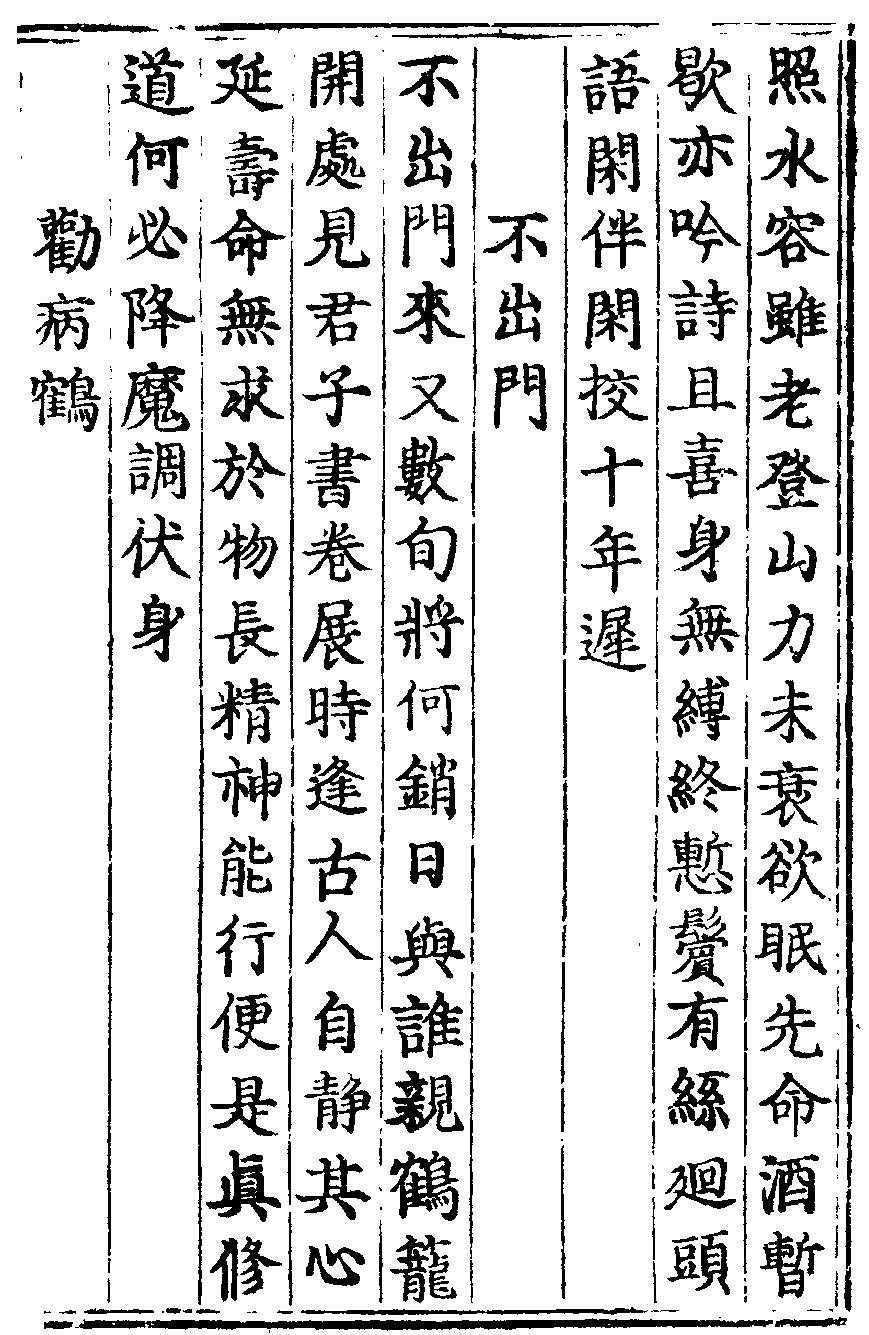 照水容雖老登山力未衰欲眠先命酒暫
歇亦吟詩且喜身無縛終慙鬢有絲廻頭
語閑伴閑挍十年遲
不出門
不出門來又數旬將何銷日與誰親鶴籠
開處見君子書卷展時逢古人自静其心
延壽命無求於物長精神能行便是真修
道何必降魔調伏身
勸病鶴